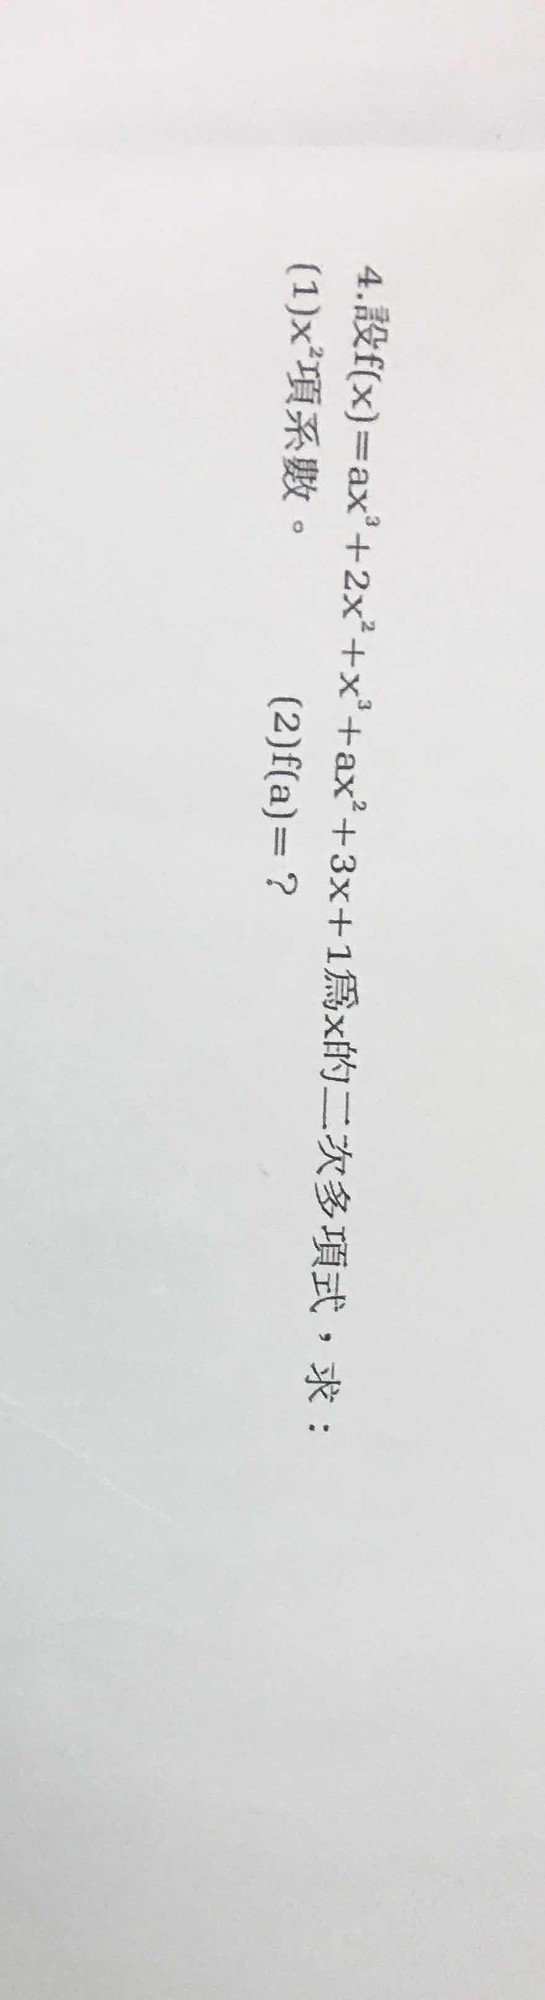 4.設f(x)=ax³+2x²+x³+ax²+3x+1為x的二次多項式，求：
(1)x²項系數。 (2)f(a)=？